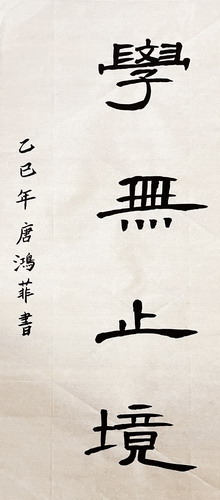 學無止境
乙巳年唐鴻菲書